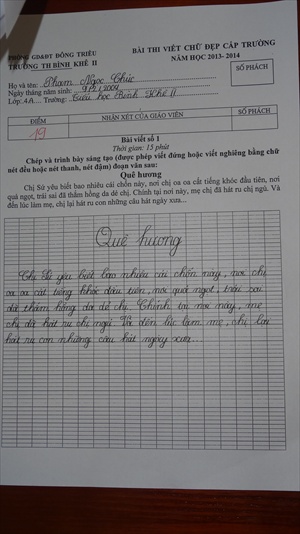 PHÒNG GD&ĐT ĐÔNG TRIỀU
TRƯỜNG TH BÌNH KHÊ II
BÀI THI VIẾT CHỮ ĐẸP CẤP TRƯỜNG
NĂM HỌC 2013- 2014
Họ và tên: Phạm Ngọc Chúc
Ngày tháng năm sinh: 9/2/2004
Lớp: 4A... Trường: Tiểu học Bình Khê II
SỐ PHÁCH
ĐIỂM
NHẬN XÉT CỦA GIÁO VIÊN
SỐ PHÁCH
19
Bài viết số 1
Thời gian: 15 phút
Chép và trình bày sáng tạo (được phép viết đứng hoặc viết nghiêng bằng chữ
nét đều hoặc nét thanh, nét đậm) đoạn văn sau:
Quê hương
Chị Sứ yêu biết bao nhiêu cái chốn này, nơi chị oa oa cất tiếng khóc đầu tiên, nơi
quả ngọt, trái sai đã thắm hồng da dẻ chị. Chính tại nơi này, mẹ chị đã hát ru chị ngủ. Và
đến lúc làm mẹ, chị lại hát ru con những câu hát ngày xưa...
Quê hương
Chị Sứ yêu biết bao nhiêu cái chốn này, nơi chị
oa oa cất tiếng khóc đầu tiên, nơi quả ngọt, trái sai
đã thắm hồng da dẻ chị. Chính tại nơi này, mẹ
chị đã hát ru chị ngủ. Và đến lúc làm mẹ, chị lại
hát ru con những câu hát ngày xưa...